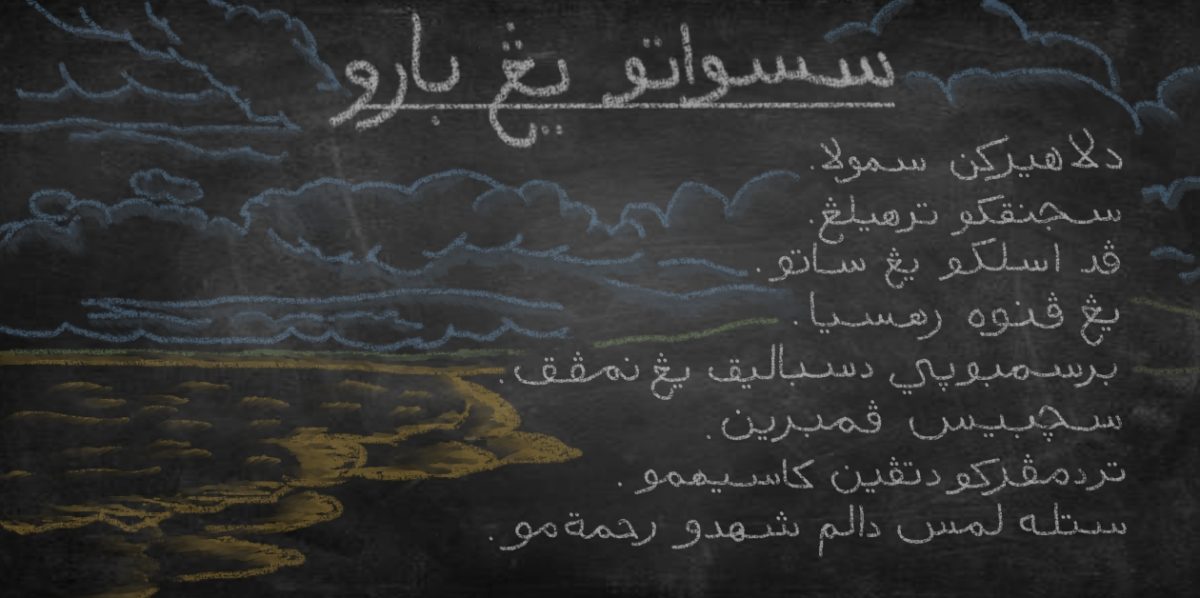 سسواتو يڠ بارو
دلاهيركن سمولا.
سجنقكو ترهيلڠ.
ڤد اسلكو يڠ ساتو.
يڠ ڤنوه رهسيا.
برسمبوڽي دسباليق يڠ نمڤق.
سچبيس ڤمبرين.
تردمڤركو دتڤين كاسيهمو.
ستله لمس دالم شهدو رحمةمو.